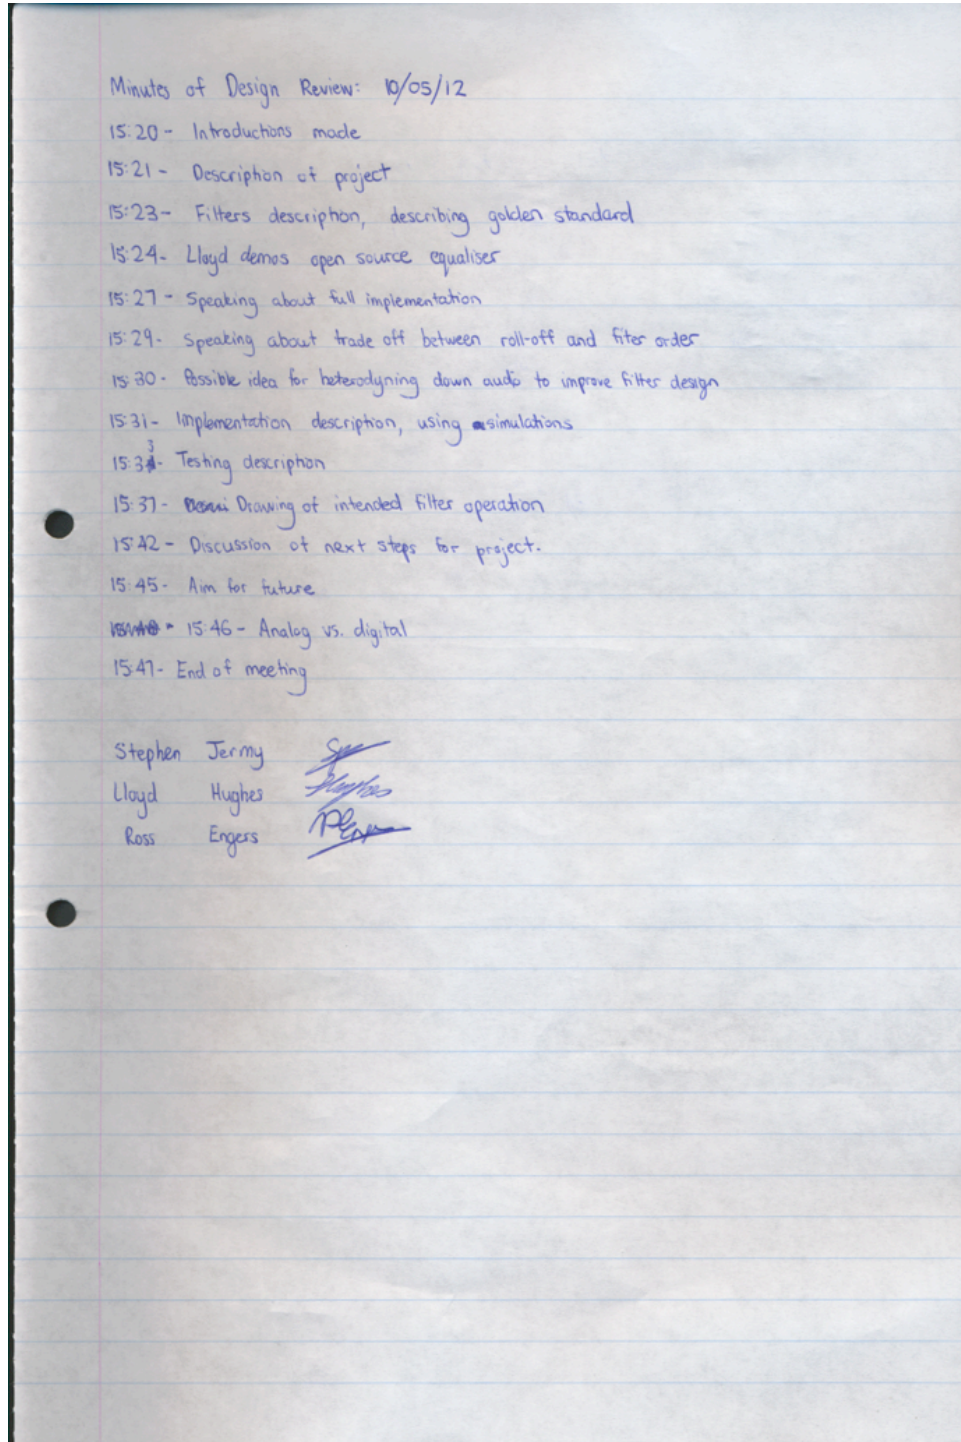 Minutes of Design Review: 10/05/12
15:20 - Introductions made
15:21 - Description of project
15:23 - Filters description, describing golden standard
15:24 - Lloyd demos open source equaliser
15:27 - Speaking about full implementation
15:29 - Speaking about trade off between roll-off and fiter order
15:30 - Possible idea for heterodyning down audio to improve filter design
15:31 - Implementation description, using simulations
15:33 - Testing description
15:37 - Drawing of intended filter operation
15:42 - Discussion of next steps for project.
15:45 - Aim for future
15:46 - Analog vs. digital
15:47 - End of meeting
Stephen Jermy
Lloyd Hughes Hughes
Ross Engers